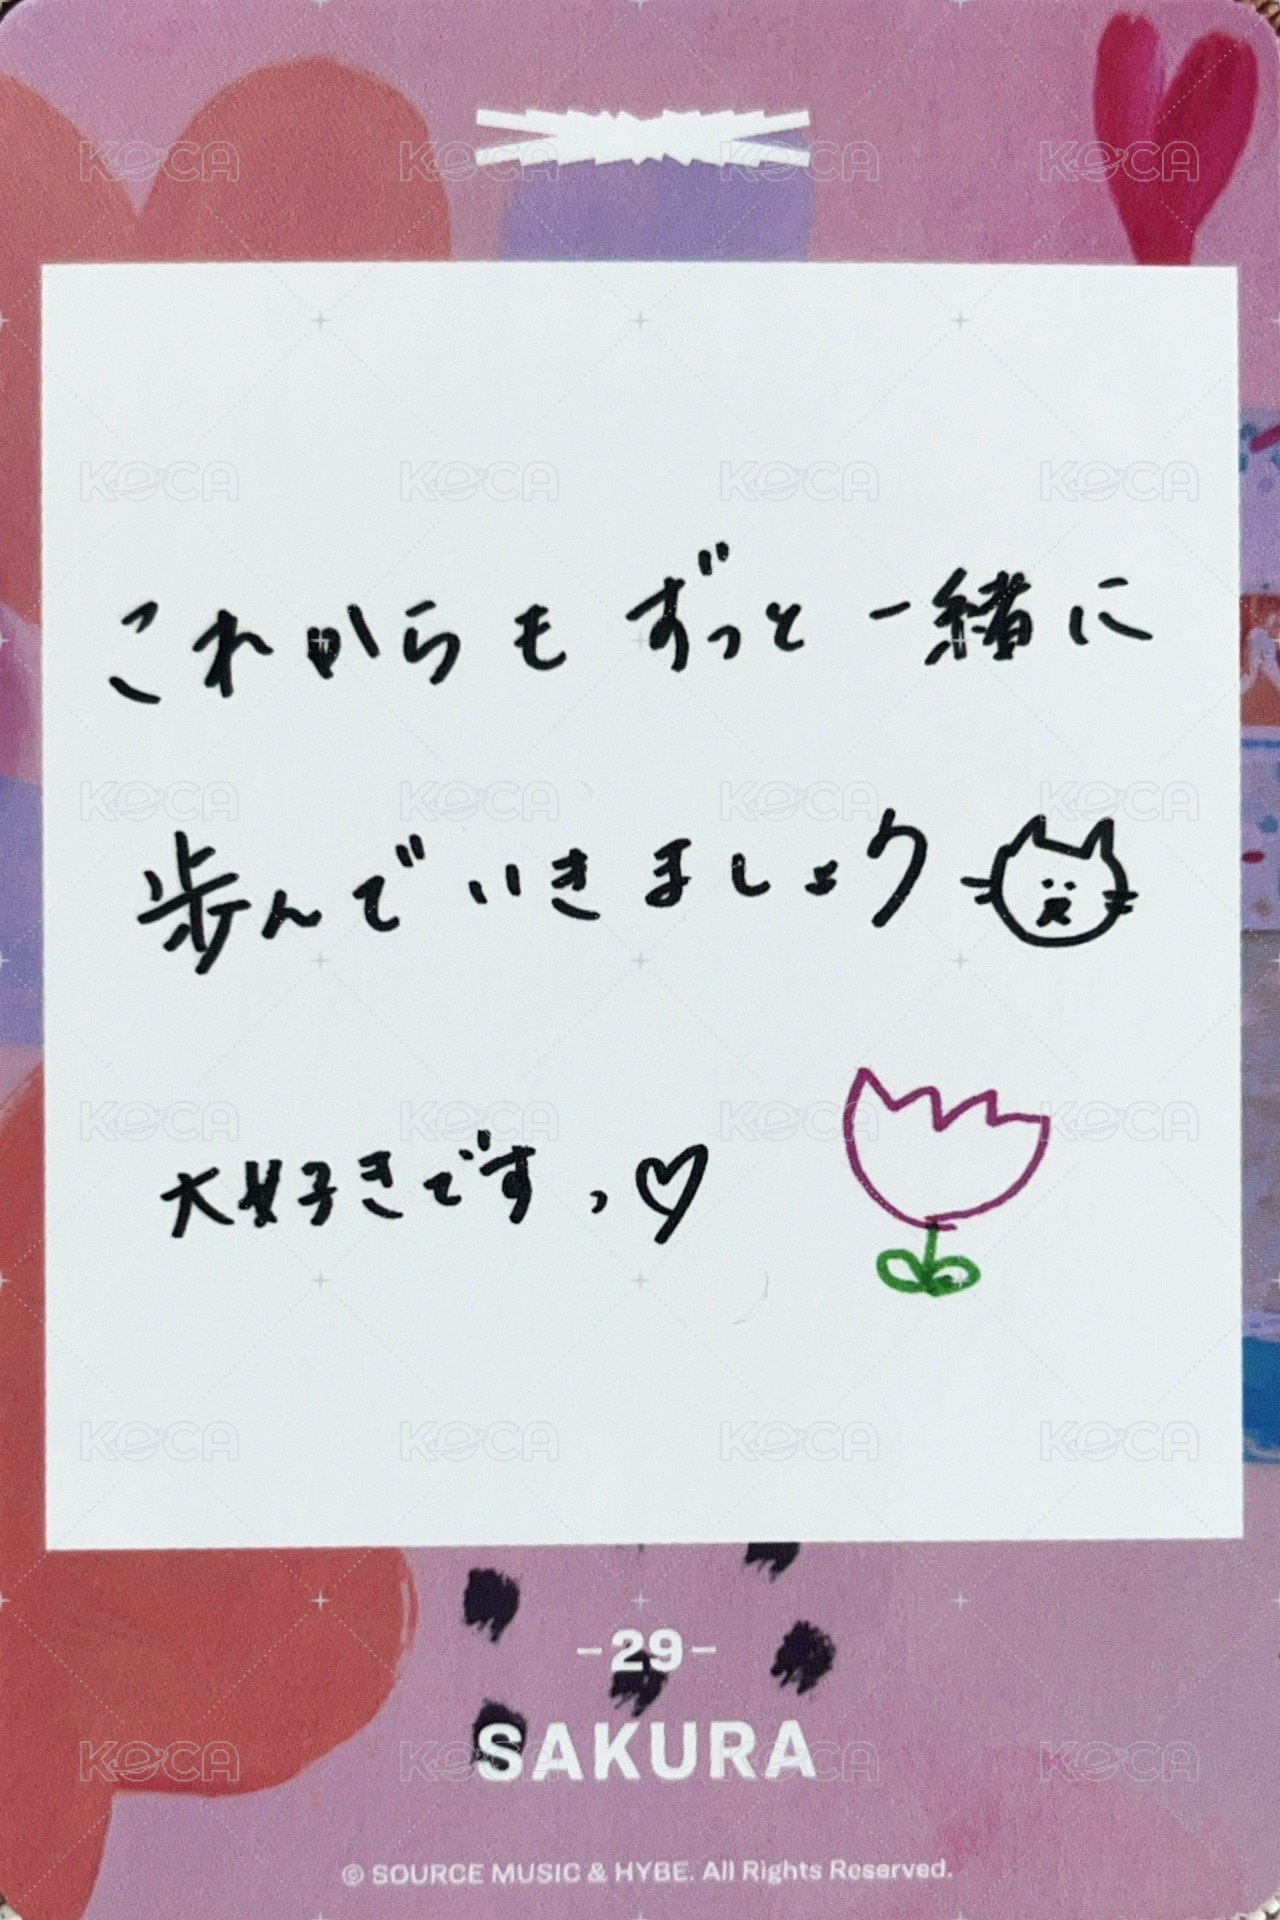 これからもずっと一緒に
歩んでいきましょう
大好きです、♡
-29-
SAKURA
© SOURCE MUSIC & HYBE. All Rights Reserved.
KOCA